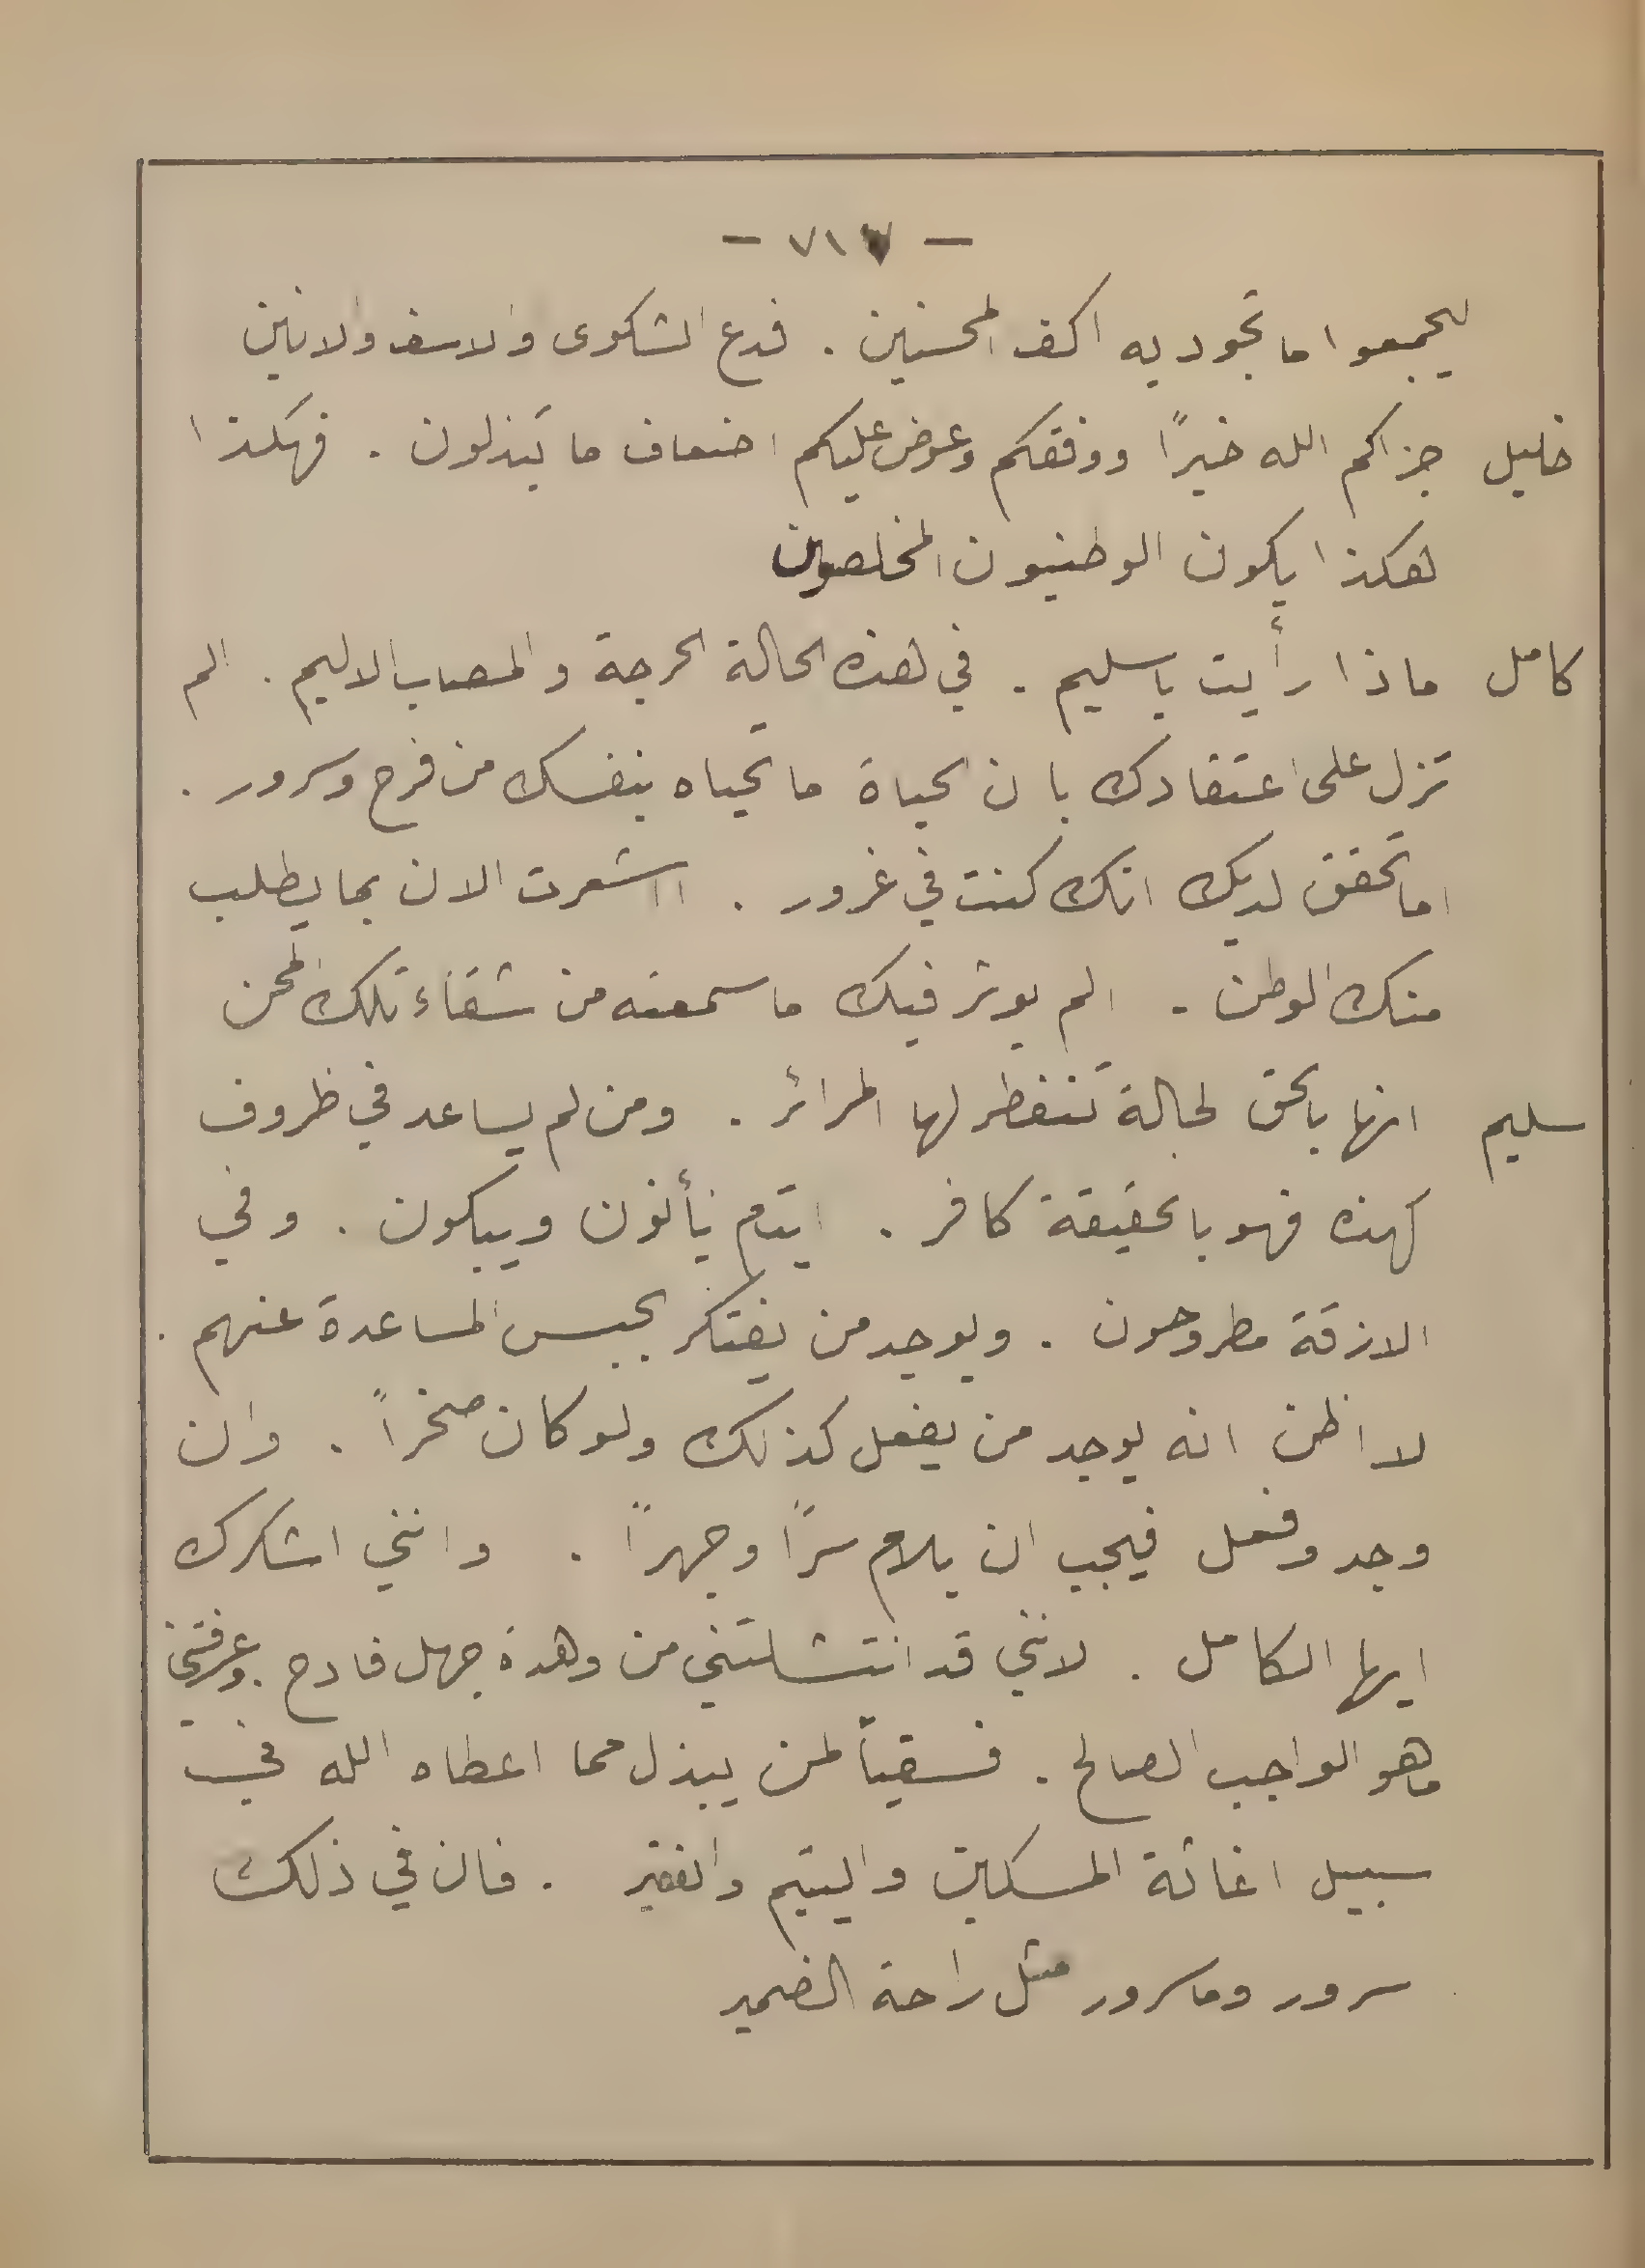 - ٧١٧ -
ليجمعوا ما تجود به اكف المحسنين . فدع الشكوى والاسف والانين
خليل جزاكم الله خيرًا ووفقكم وعوض عليكم اضعاف ما تبذلون . فهكذا
هكذا يكون الوطنيون المخلصون
كامل ماذا رأيت يا سليم . في هذه الحالة الحرجة والمصاب الاليم . الم
تزل على اعتقادك بان الحياة ما تحياه بنفسك من فرح وسرور .
اما تحقق لديك انك كنت في غرور . ااشعرت الان بما يطلب
منك الوطن . الم يوثر فيك ما سمعته من شقاء تلك المحن
سليم انها بالحق لحالة تنفطر لها المرائر . ومن لم يساعد في ظروف
كهذه فهو بالحقيقة كافر . ايتام يألنون ويبكون . وفي
الازقة مطروحون . ويوجد من يفتكر بحبس المساعدة عنهم .
لا اظن انه يوجد من يفعل كذلك ولو كان صخراً . وان
وجد وفعل فيجب ان يلام سرًا وجهرًا . وانني اشكرك
ايها الكامل . لانني قد انتشلتني من وهدة جهل فادح . وعرفتني
ما هو الواجب الصالح . فسقياً لمن يبذل مما اعطاه الله في
سبيل اغاثة المسكين واليتيم والفقير . فان في ذلك
سرور وما سرور مثل راحة الضمير